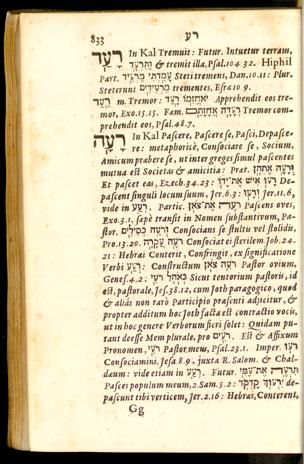 רע
833
רָעַד In Kal Tremuit: Futur. Intuetur terram,
וַתִּרְעָד & tremit illa, Psal. 104 32. Hiphil
Part. עָמַדְתִּי מַרְעִיד Steti tremens, Dan. 10. 11: Plur.
Steterunt מַרְעִידִים trementes, Esra 10. 9.
רַעַד m. Tremor: יֹאחֲזֵמוֹ רָעַד Apprehendit eos tre-
mor, Exo. 15. 15. Fam. רְעָדָה אֲחָזָתַם Tremor com-
prehendit eos, Psal. 48. 7.
רָעָה In Kal Pascere, Pascere se, Pasci, Depasce-
re: metaphoricè, Consociare se, Socium,
Amicum præbere se, ut inter greges simul pascentes
mutua est Societas & amicitia: Præt.
Et pascet eas, Ezech. 34. 23: רָעוּ אִישׁ אֶת־יָדוֹ De-
pascent singuli locum suum, Jer. 6. 3: Jer. 11. 6,
vide in רָעַע. Partic. Pascens oves,
Exo. 3. 1. sæpè transit in Nomen substantivum, Pa-
stor. וְרֹעֶה כְסִילִים Consocians se stultu vel stolidis,
Pro. 13. 20. רֹעֶה עֲקָרָה Consociat et sterilem Job. 24.
21: Hebræi Conterit, Confringit, ex significatione
Verbi רָעַע: Constructum רֹעֵה צֹאן Pastor ovium,
Genes. 4. 2: כְּאֹהֶל רֹעִי Sicut tentorium pastoris, id
est, pastorale, Jes. 38. 12, cum Jod paragogico, quod
& aliàs non rarò Participio præsenti adjicitur, &
propter additum hoc Jod facta est contractio vocis,
ut in hoc genere Verborum fieri solet: Quidam pu-
tant deesse Mem plurale, pro רֹעִים. Est & Affixum
Pronomen, רֹעִי Pastor meus, Psal. 23. 1. Imper. רֹעוּ
Consociamini, Jesa. 8. 9. juxta R. Salom. & Chal-
dæum: vide etiam in רָעַע. Futur. תִּרְעֶה אֶת־עַמִּי
Pasces populum meum, 2. Sam. 5. 2: יִרְעוּךְ קָדְקֹד de-
pascunt tibi verticem, Jer. 2. 16: Hebræi, Conterent,
Gg